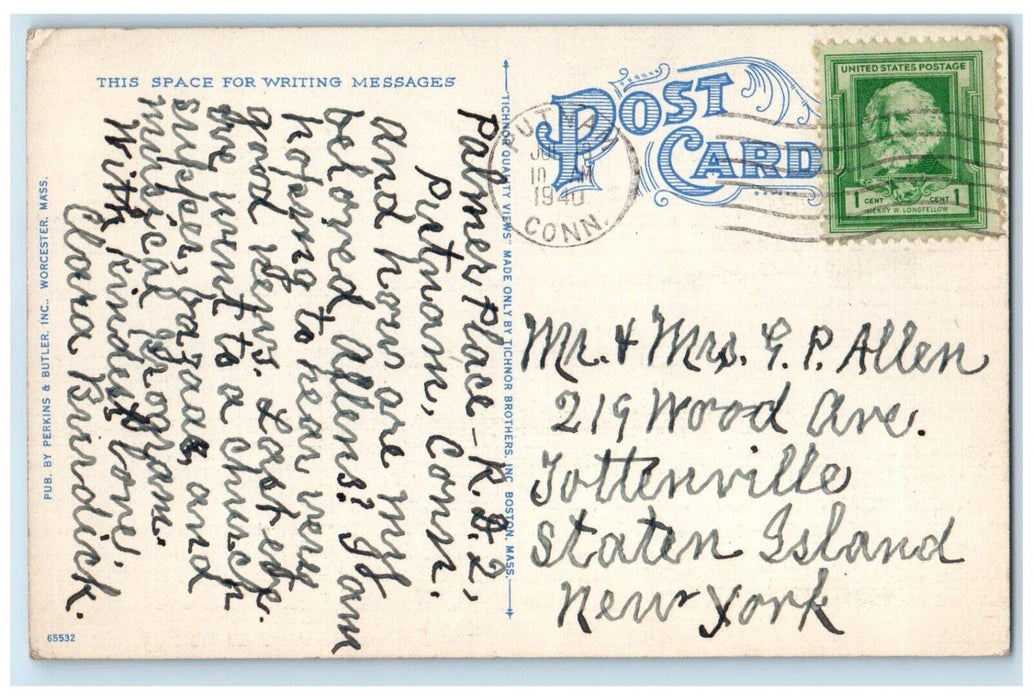 THIS SPACE FOR WRITING MESSAGES
Palmer Place - R.D.2,
Putnam, Conn.
and how are my
beloved Allens? I am
hoping to hear very
good news. Last eve.
we went to a church
supper, bazaar, and
musical program.
With kindest love,
Clara Burdick.
PUB. BY PERKINS & BUTLER, INC., WORCESTER, MASS.
65532
"TICHNOR QUALITY VIEWS" MADE ONLY BY TICHNOR BROTHERS, INC. BOSTON, MASS.
POST
CARD
PUTNAM
10 AM
1940
CONN.
UNITED STATES POSTAGE
1 CENT CENT 1
HENRY W. LONGFELLOW
Mr. & Mrs. G. P. Allen
219 Wood Ave.
Tottenville
Staten Island
New York